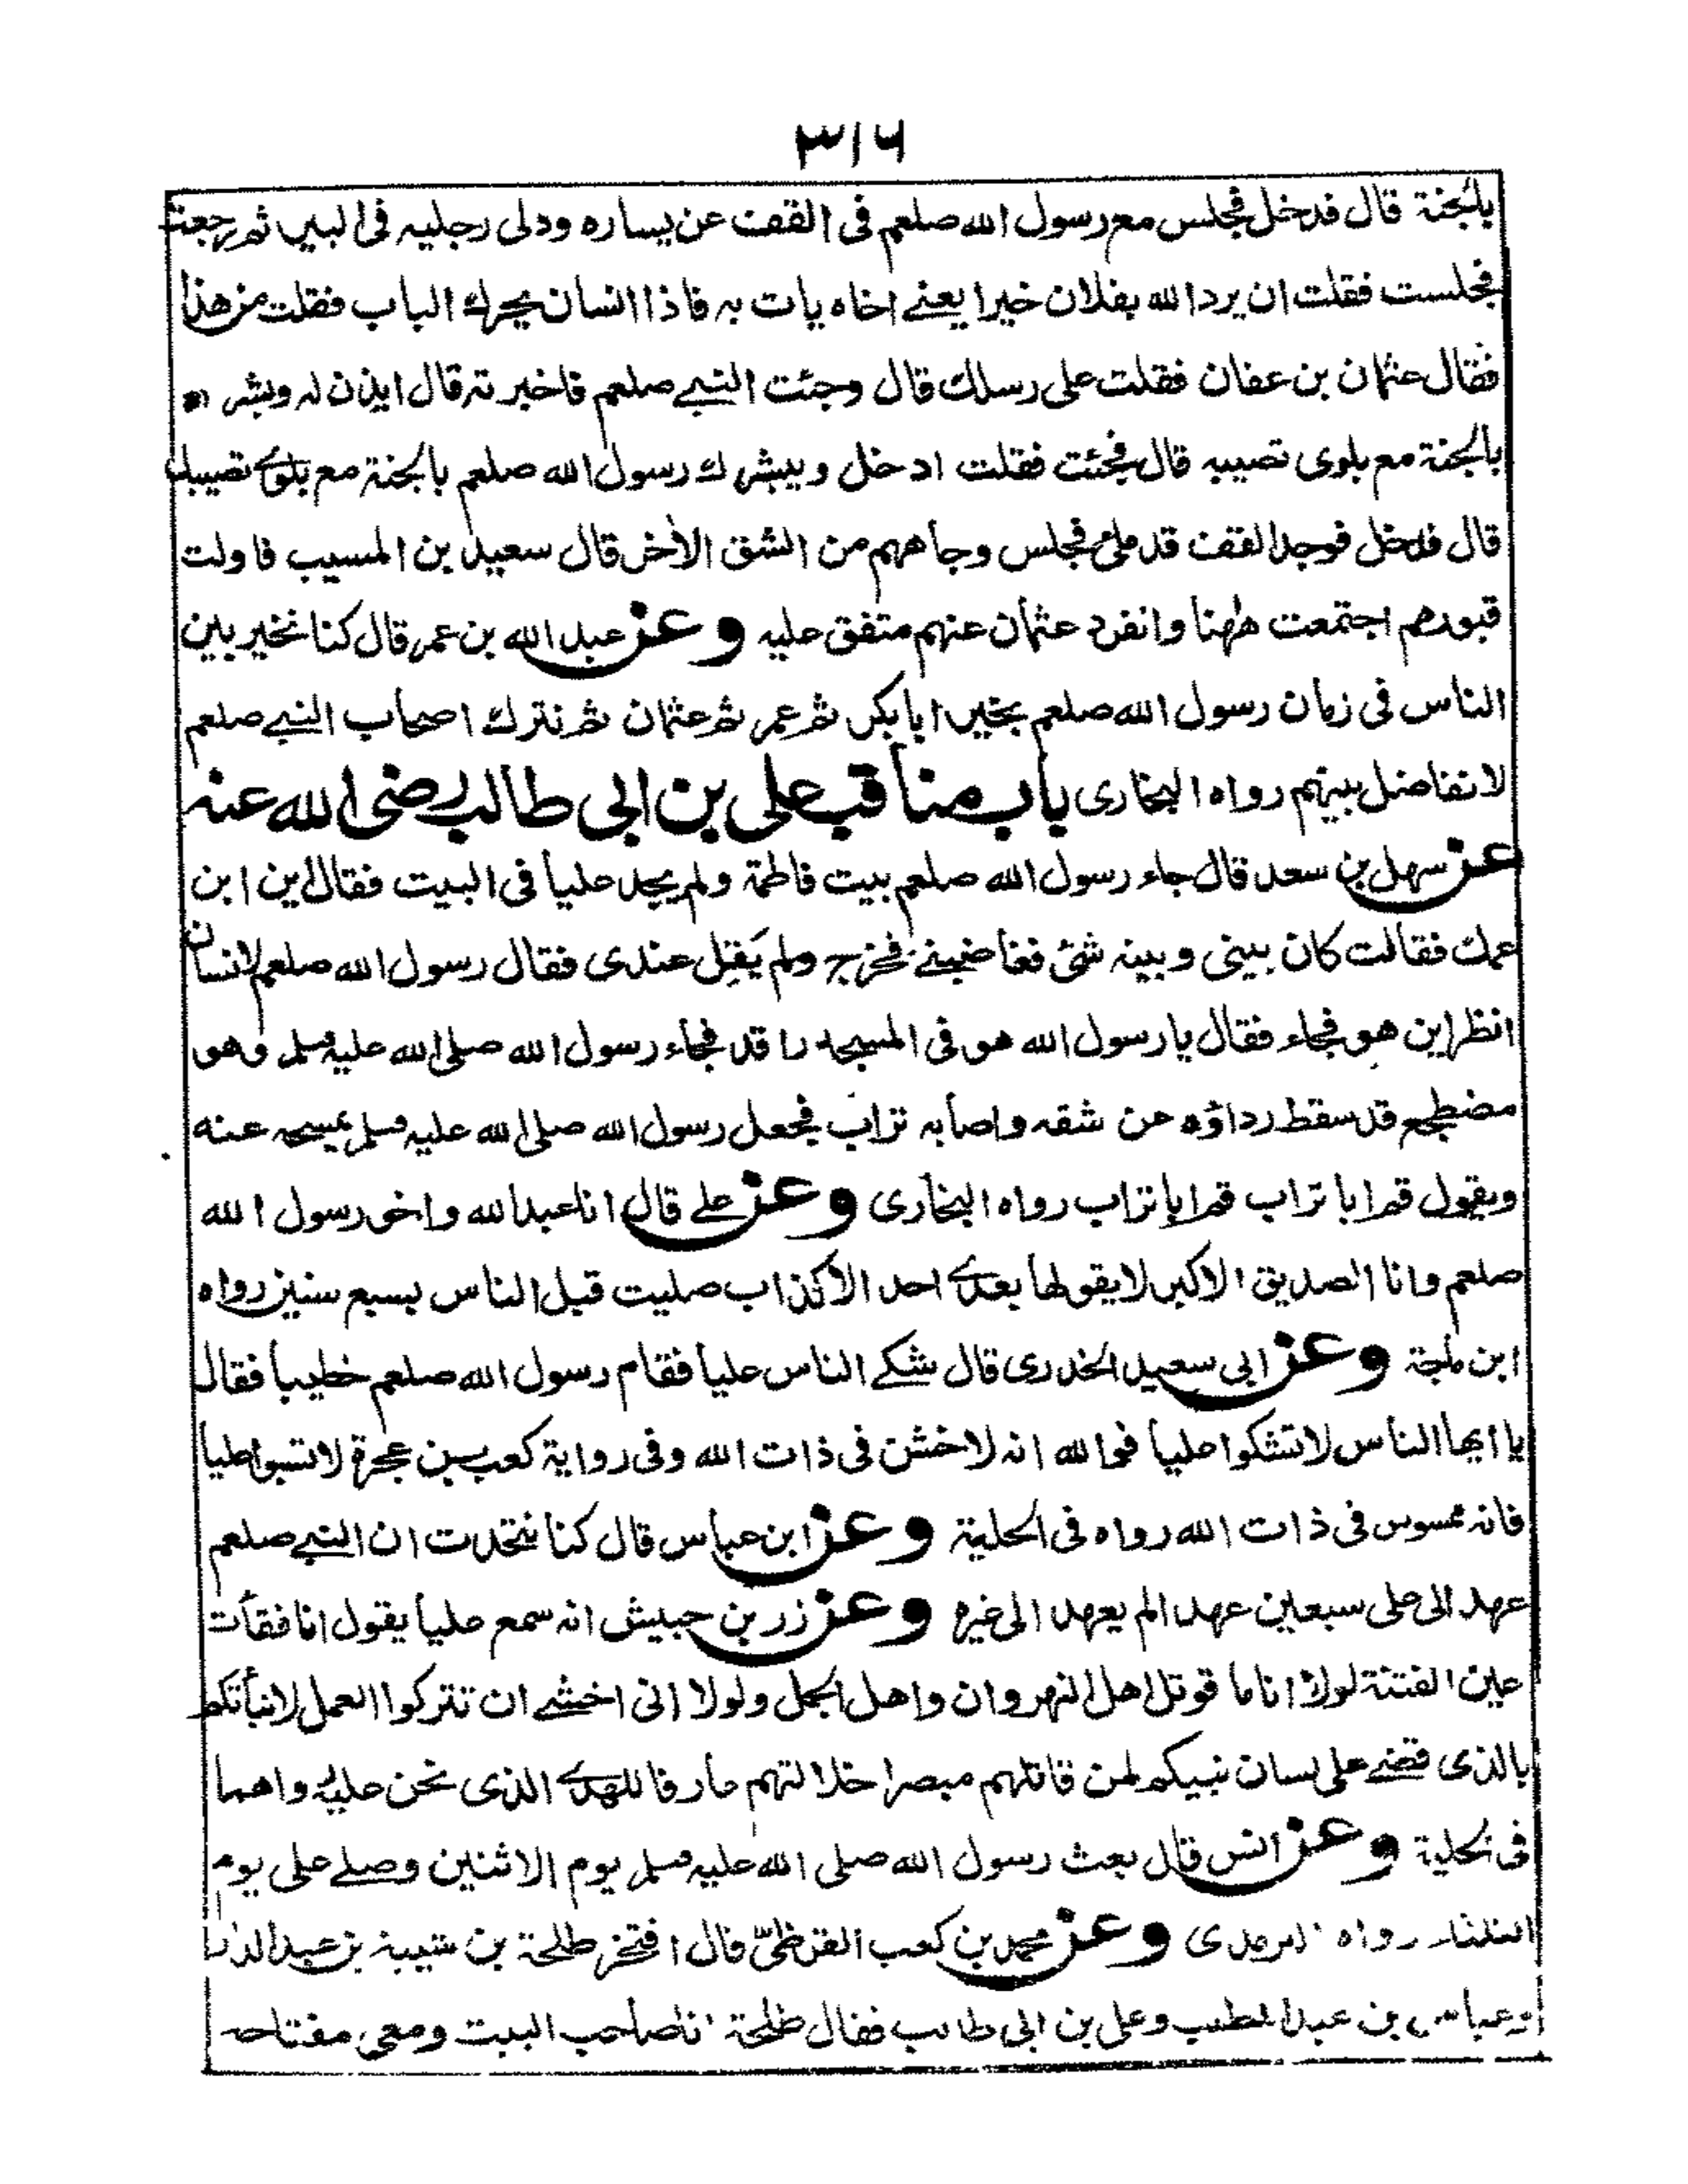 ٣١٦
بالجنة قال فدخل فجلس مع رسول الله صلعم فى القفف عن يساره ودلى رجليه فى البير ثم رجعت
فجلست فقلت ان يرد الله بفلان خيرا يعنے اخاه يات به فاذا انسان يحرك الباب فقلت من هذا
فقال عثمان بن عفان فقلت على رسلك قال وجئت النبے صلعم فاخبرته قال ايذن له وبشره
بالجنة مع بلوى تصيبه قال فجئت فقلت ادخل ويبشرك رسول الله صلعم بالجنة مع بلوے تصيبك
قال فدخل فوجد القفف قد ملئ فجلس وجاههم من الشق الاخر قال سعيد بن المسيب فاولت
قبورهم اجتمعت ههنا وانفرد عثمان عنهم متفق عليه وعن عبد الله بن عمر قال كنا نخير بين
الناس فى زمان رسول الله صلعم بخير ابا بكر ثم عمر ثم عثمان ثم نترك اصحاب النبے صلعم
لا نفاضل بينهم رواه البخارى باب مناقب على بن ابى طالب رضى الله عنه
عن سهل بن سعد قال جاء رسول الله صلعم بيت فاطمة ولم يجد عليا فى البيت فقال اين ابن
عمك فقالت كان بينى وبينه شئ فغاضبنے فخرج ولم يَقِل عندى فقال رسول الله صلعم لانسان
انظر اين هو فجاء فقال يا رسول الله هو فى المسجد راقد فجاء رسول الله صلى الله عليه وسلم وهو
مضطجع قد سقط رداؤه عن شقه واصابه تراب فجعل رسول الله صلى الله عليه وسلم يمسحه عنه
ويقول قم ابا تراب قم ابا تراب رواه البخارى وعن علے قال انا عبد الله واخو رسول الله
صلعم وانا الصديق الاكبر لا يقولها بعدے احد الا كذاب صليت قبل الناس بسبع سنين رواه
ابن ماجة وعن ابى سعيد الخدرى قال شكے الناس عليا فقام رسول الله صلعم خطيبا فقال
يا ايها الناس لا تشكوا عليا فوالله انه لاخشن فى ذات الله وفى رواية كعب بن عجرة لا تسبوا عليا
فانه ممسوس فى ذات الله رواه فى الحلية وعن ابن عباس قال كنا نتحدث ان النبے صلعم
عهد الى على سبعين عهدا لم يعهد الى غيره وعن زر بن حبيش انه سمع عليا يقول انا فقأت
عين الفتنة لولا انا ما قوتل اهل النهروان واهل الجمل ولولا انى اخشے ان تتركوا العمل لانبأتكم
بالذى قضے على لسان نبيكم لمن قاتلهم مبصرا ضلالتهم عارفا للهدے الذى نحن عليه رواهما
فى الحلية وعن انس قال بعث رسول الله صلى الله عليه وسلم يوم الاثنين وصلے على يوم
الثلثاء رواه الترمذى وعن محمد بن كعب القرظى قال افتخر طلحة بن شيبة بن عبد الدار
وعباس بن عبد المطلب وعلى بن ابى طالب فقال طلحة انا صاحب البيت ومعى مفتاحه